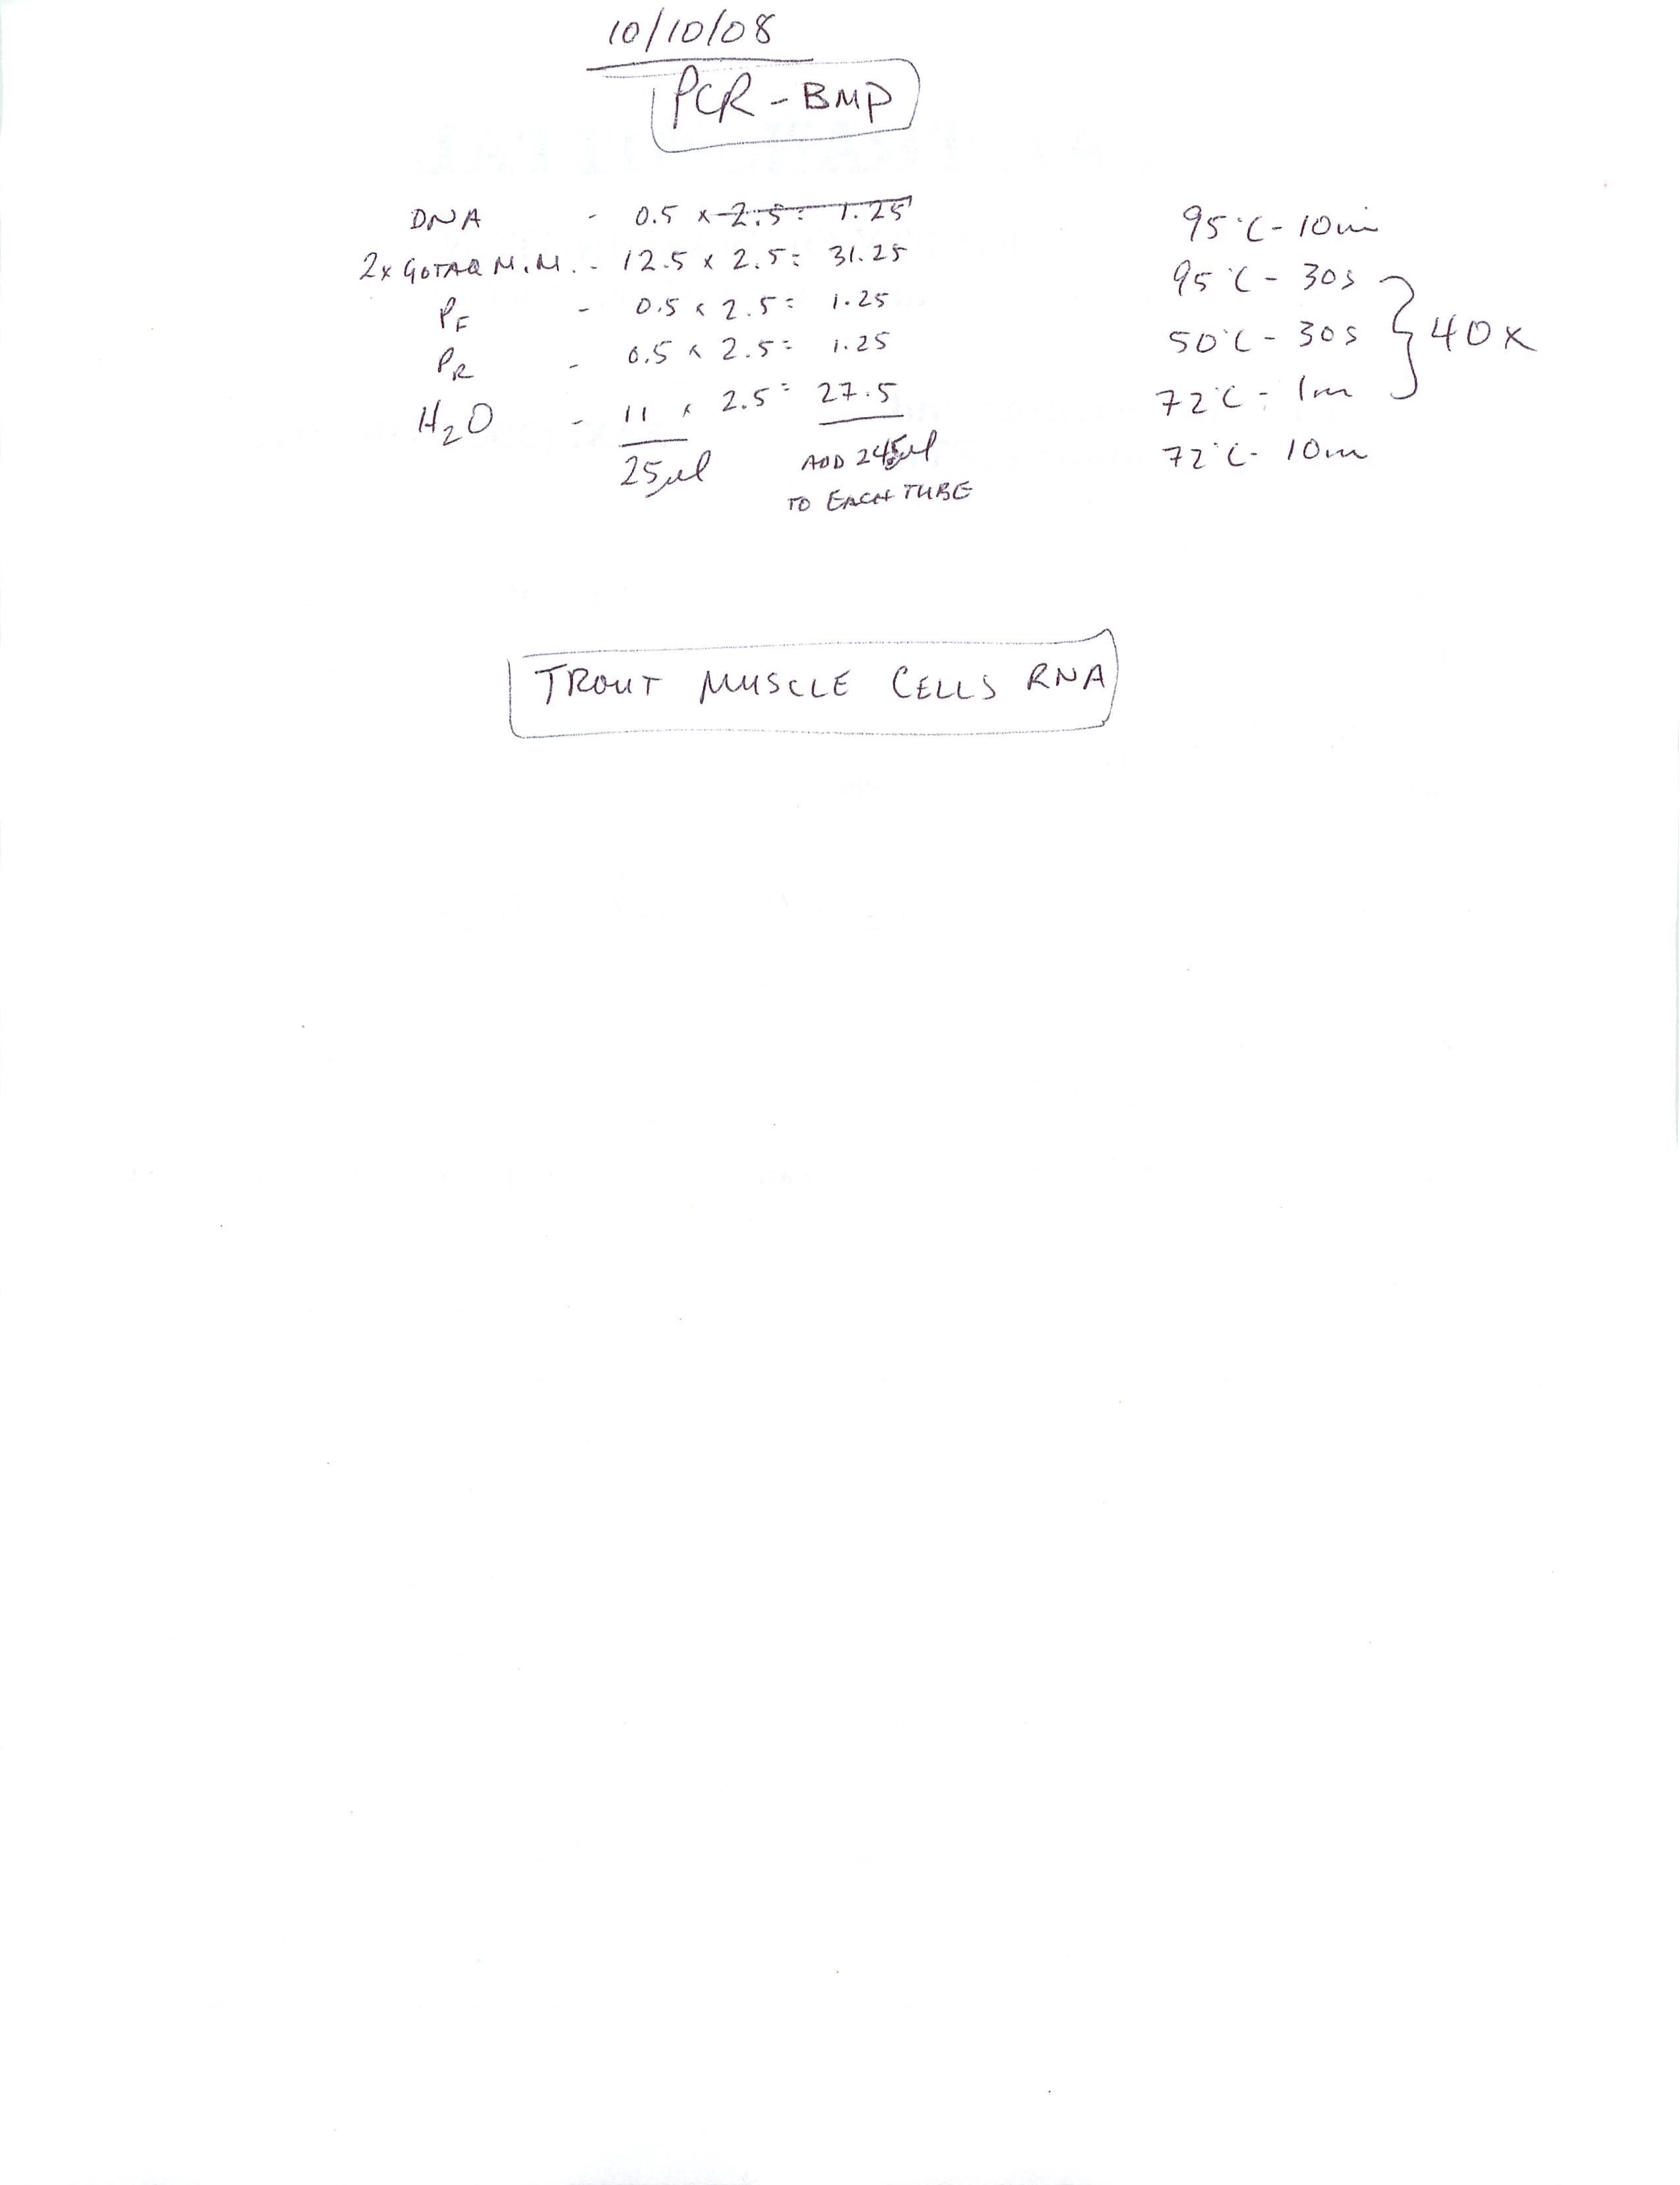 10/10/08
PCR - BMP
DNA - 0.5 x 2.5 = 1.25
2x GOTAQ M.M. - 12.5 x 2.5 = 31.25
PF - 0.5 x 2.5 = 1.25
PR - 0.5 x 2.5 = 1.25
H2O - 11 x 2.5 = 27.5
25µl
ADD µl
TO EACH TUBE
95°C - 10min
95°C - 30s
50°C - 30s } 40x
72°C - 1m
72°C - 10m
TROUT MUSCLE CELLS RNA